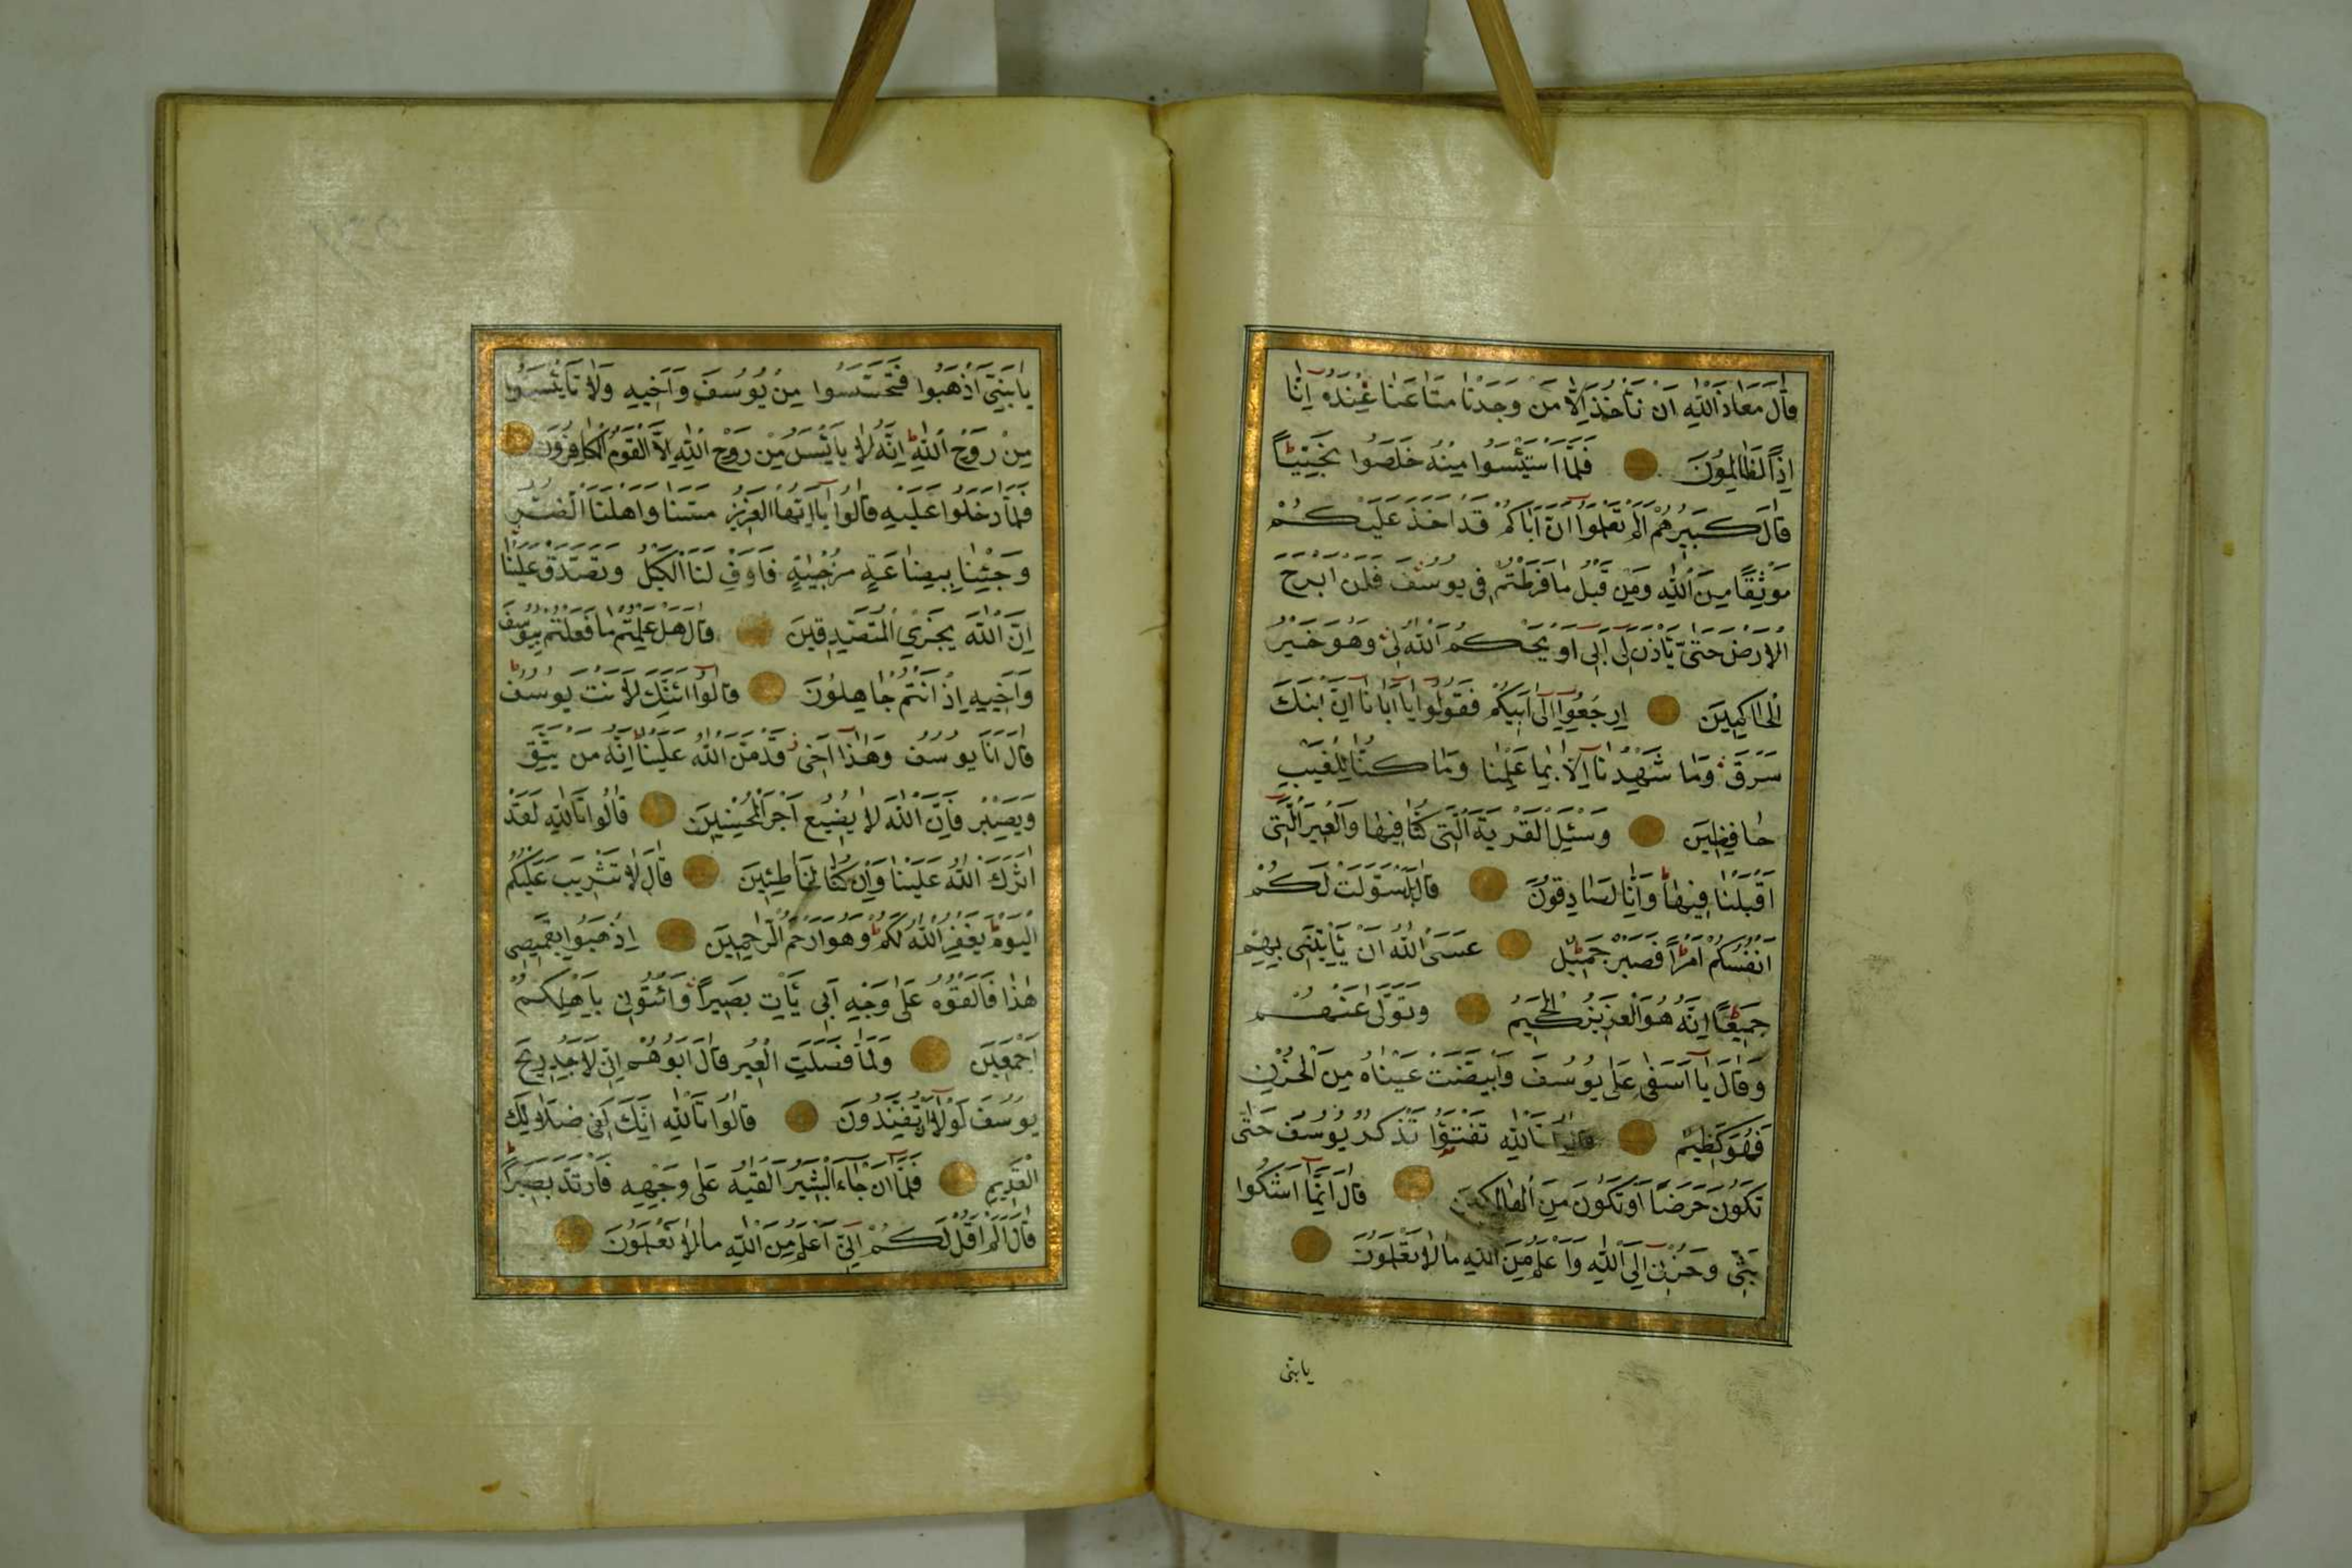 قَالَ مَعَاذَ اللّٰهِ اَنْ نَأْخُذَ اِلَّا مَنْ وَجَدْنَا مَتَاعَنَا عِنْدَهُ اِنَّا
اِذًا لَظَالِمُونَ فَلَمَّا اسْتَيْئَسُوا مِنْهُ خَلَصُوا نَجِيًّا
قَالَ كَبِيرُهُمْ اَلَمْ تَعْلَمُوا اَنَّ اَبَاكُمْ قَدْ اَخَذَ عَلَيْكُمْ
مَوْثِقًا مِنَ اللّٰهِ وَمِنْ قَبْلُ مَا فَرَّطْتُمْ فِي يُوسُفَ فَلَنْ اَبْرَحَ
الْاَرْضَ حَتّٰى يَأْذَنَ لِي اَبِي اَوْ يَحْكُمَ اللّٰهُ لِي وَهُوَ خَيْرُ
الْحَاكِمِينَ اِرْجِعُوا اِلٰى اَبِيكُمْ فَقُولُوا يَا اَبَانَا اِنَّ ابْنَكَ
سَرَقَ وَمَا شَهِدْنَا اِلَّا بِمَا عَلِمْنَا وَمَا كُنَّا لِلْغَيْبِ
حَافِظِينَ وَسْئَلِ الْقَرْيَةَ الَّتِي كُنَّا فِيهَا وَالْعِيرَ الَّتِي
اَقْبَلْنَا فِيهَا وَاِنَّا لَصَادِقُونَ قَالَ بَلْ سَوَّلَتْ لَكُمْ
اَنْفُسُكُمْ اَمْرًا فَصَبْرٌ جَمِيلٌ عَسَى اللّٰهُ اَنْ يَأْتِيَنِي بِهِمْ
جَمِيعًا اِنَّهُ هُوَ الْعَزِيزُ الْحَكِيمُ وَتَوَلّٰى عَنْهُمْ
وَقَالَ يَا اَسَفٰى عَلٰى يُوسُفَ وَابْيَضَّتْ عَيْنَاهُ مِنَ الْحُزْنِ
فَهُوَ كَظِيمٌ قَالُوا تَاللّٰهِ تَفْتَؤُا تَذْكُرُ يُوسُفَ حَتّٰى
تَكُونَ حَرَضًا اَوْ تَكُونَ مِنَ الْهَالِكِينَ قَالَ اِنَّمَا اَشْكُوا
بَثِّي وَحُزْنِي اِلَى اللّٰهِ وَاَعْلَمُ مِنَ اللّٰهِ مَا لَا تَعْلَمُونَ
يابنى
يَا بَنِيَّ اذْهَبُوا فَتَحَسَّسُوا مِنْ يُوسُفَ وَاَخِيهِ وَلَا تَايْئَسُوا
مِنْ رَوْحِ اللّٰهِ اِنَّهُ لَا يَايْئَسُ مِنْ رَوْحِ اللّٰهِ اِلَّا الْقَوْمُ الْكَافِرُونَ
فَلَمَّا دَخَلُوا عَلَيْهِ قَالُوا يَا اَيُّهَا الْعَزِيزُ مَسَّنَا وَاَهْلَنَا الضُّرُّ
وَجِئْنَا بِبِضَاعَةٍ مُزْجٰيةٍ فَاَوْفِ لَنَا الْكَيْلَ وَتَصَدَّقْ عَلَيْنَا
اِنَّ اللّٰهَ يَجْزِي الْمُتَصَدِّقِينَ قَالَ هَلْ عَلِمْتُمْ مَا فَعَلْتُمْ بِيُوسُفَ
وَاَخِيهِ اِذْ اَنْتُمْ جَاهِلُونَ قَالُوا ائِنَّكَ لَاَنْتَ يُوسُفُ
قَالَ اَنَا يُوسُفُ وَهٰذَا اَخِي قَدْ مَنَّ اللّٰهُ عَلَيْنَا اِنَّهُ مَنْ يَتَّقِ
وَيَصْبِرْ فَاِنَّ اللّٰهَ لَا يُضِيعُ اَجْرَ الْمُحْسِنِينَ قَالُوا تَاللّٰهِ لَقَدْ
اٰثَرَكَ اللّٰهُ عَلَيْنَا وَاِنْ كُنَّا لَخَاطِئِينَ قَالَ لَا تَثْرِيبَ عَلَيْكُمُ
الْيَوْمَ يَغْفِرُ اللّٰهُ لَكُمْ وَهُوَ اَرْحَمُ الرَّاحِمِينَ اِذْهَبُوا بِقَمِيصِي
هٰذَا فَاَلْقُوهُ عَلٰى وَجْهِ اَبِي يَأْتِ بَصِيرًا وَاْتُونِي بِاَهْلِكُمْ
اَجْمَعِينَ وَلَمَّا فَصَلَتِ الْعِيرُ قَالَ اَبُوهُمْ اِنِّي لَاَجِدُ رِيحَ
يُوسُفَ لَوْلَا اَنْ تُفَنِّدُونِ قَالُوا تَاللّٰهِ اِنَّكَ لَفِي ضَلَالِكَ
الْقَدِيمِ فَلَمَّا اَنْ جَاءَ الْبَشِيرُ اَلْقٰيهُ عَلٰى وَجْهِهِ فَارْتَدَّ بَصِيرًا
قَالَ اَلَمْ اَقُلْ لَكُمْ اِنِّي اَعْلَمُ مِنَ اللّٰهِ مَا لَا تَعْلَمُونَ